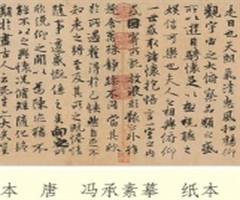 是日也天朗氣清惠風和暢仰
觀宇宙之大俯察品類之盛
所以遊目騁懷足以極視聽之
娛信可樂也夫人之相與俯仰
一世或取諸懷抱悟言一室之內
或因寄所託放浪形骸之外雖
趣舍萬殊靜躁不同當其欣
於所遇蹔得於己怏然自足不
知老之將至及其所之既惓情
隨事遷感慨係之矣向之所
欣俛仰之閒以為陳迹猶不
能不以之興懷況脩短隨化終
期於盡古人云死生亦大矣豈
本 唐 冯承素摹 纸本